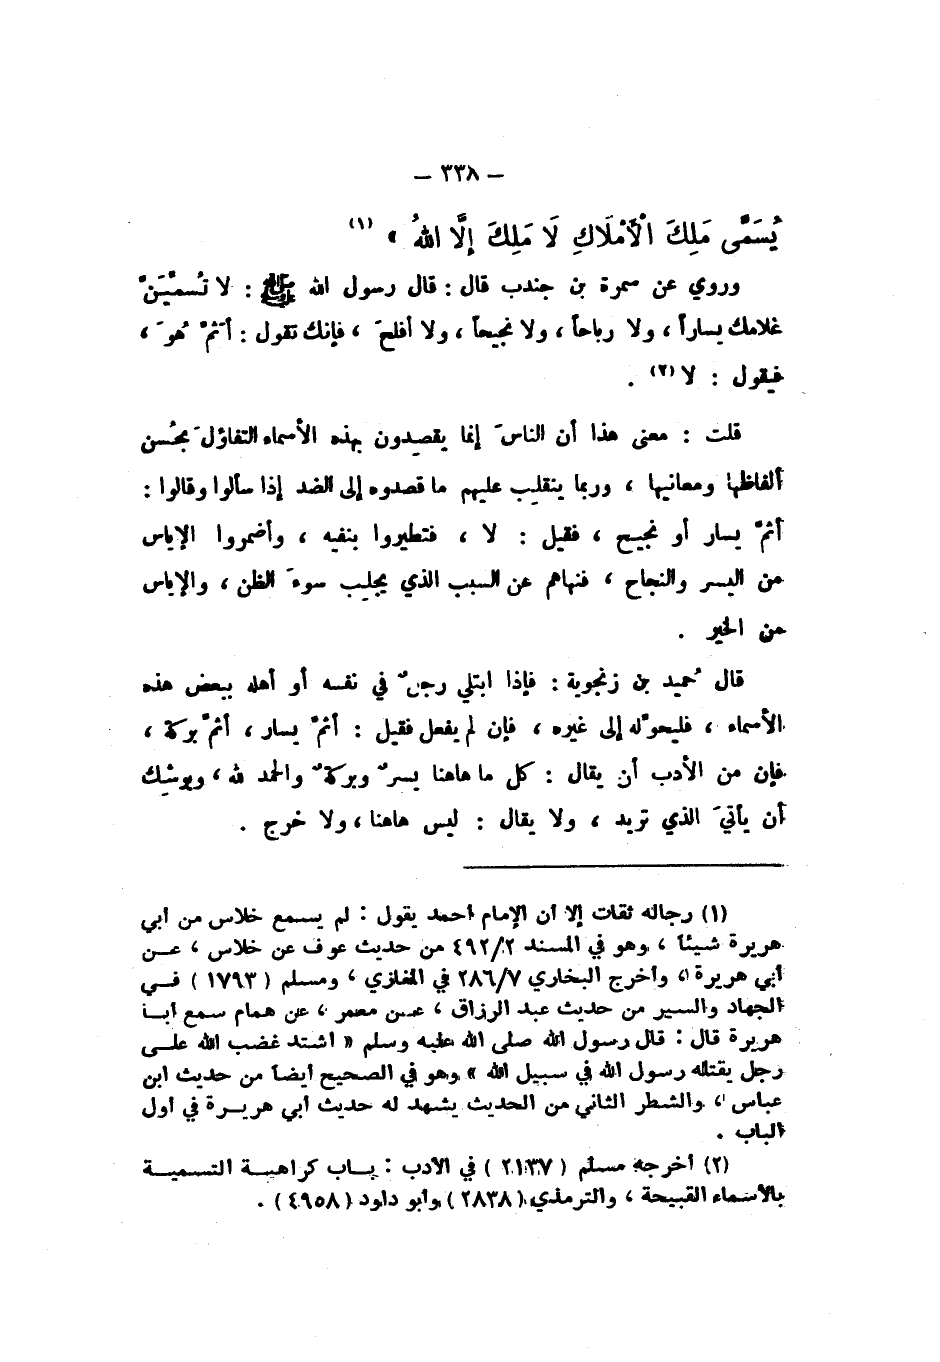 — ٣٣٨ —
يُسَمَّى مَلِكَ الْأَمْلَاكِ لَا مَلِكَ إِلَّا اللهُ » (١)
وروي عن سمرة بن جندب قال : قال رسول الله ﷺ : لا تُسمِّيَنَّ
غلامك يساراً ، ولا رباحاً ، ولا نجيحاً ، ولا أفلحَ ، فإنك تقول : أثمَّ هُوَ ،
فيقول : لا (٢) .
قلت : معنى هذا أن الناسَ إنما يقصدون بهذه الأسماء التفاؤلَ بحُسن
ألفاظها ومعانيها ، وربما ينقلب عليهم ما قصدوه إلى الضد إذا سألوا وقالوا :
أثمَّ يسار أو نجيح ، فقيل : لا ، فتطيروا بنفيه ، وأضمروا الإياس
من اليسر والنجاح ، فنهاهم عن السبب الذي يجلب سوءَ الظن ، والإياس
من الخير .
قال حُميد بن زنجوية : فإذا ابتلي رجلٌ في نفسه أو أهله ببعض هذه
الأسماء ، فليحوّله إلى غيره ، فإن لم يفعل فقيل : أثمَّ يسار ، أثمَّ بركة ،
فإن من الأدب أن يقال : كل ما هاهنا يسرٌ وبركةٌ والحمد لله ، ويوشك
أن يأتيَ الذي تريد ، ولا يقال : ليس هاهنا ، ولا خرج .
(١) رجاله ثقات إلا أن الإمام أحمد يقول : لم يسمع خلاس من أبي
هريرة شيئا ، وهو في المسند ٤٩٢/٢ من حديث عوف عن خلاس ، عن
أبي هريرة ، وأخرج البخاري ٢٨٦/٧ في المغازي ، ومسلم ( ١٧٩٣ ) في
الجهاد والسير من حديث عبد الرزاق ، عن معمر ، عن همام سمع أبا
هريرة قال : قال رسول الله صلى الله عليه وسلم « اشتد غضب الله على
رجل يقتله رسول الله في سبيل الله » وهو في الصحيح أيضا من حديث ابن
عباس ، والشطر الثاني من الحديث يشهد له حديث أبي هريرة في أول
الباب .
(٢) أخرجه مسلم ( ٢١٣٧ ) في الأدب : باب كراهية التسمية
بالأسماء القبيحة ، والترمذي ( ٢٨٣٨ ) وأبو داود ( ٤٩٥٨ ) .